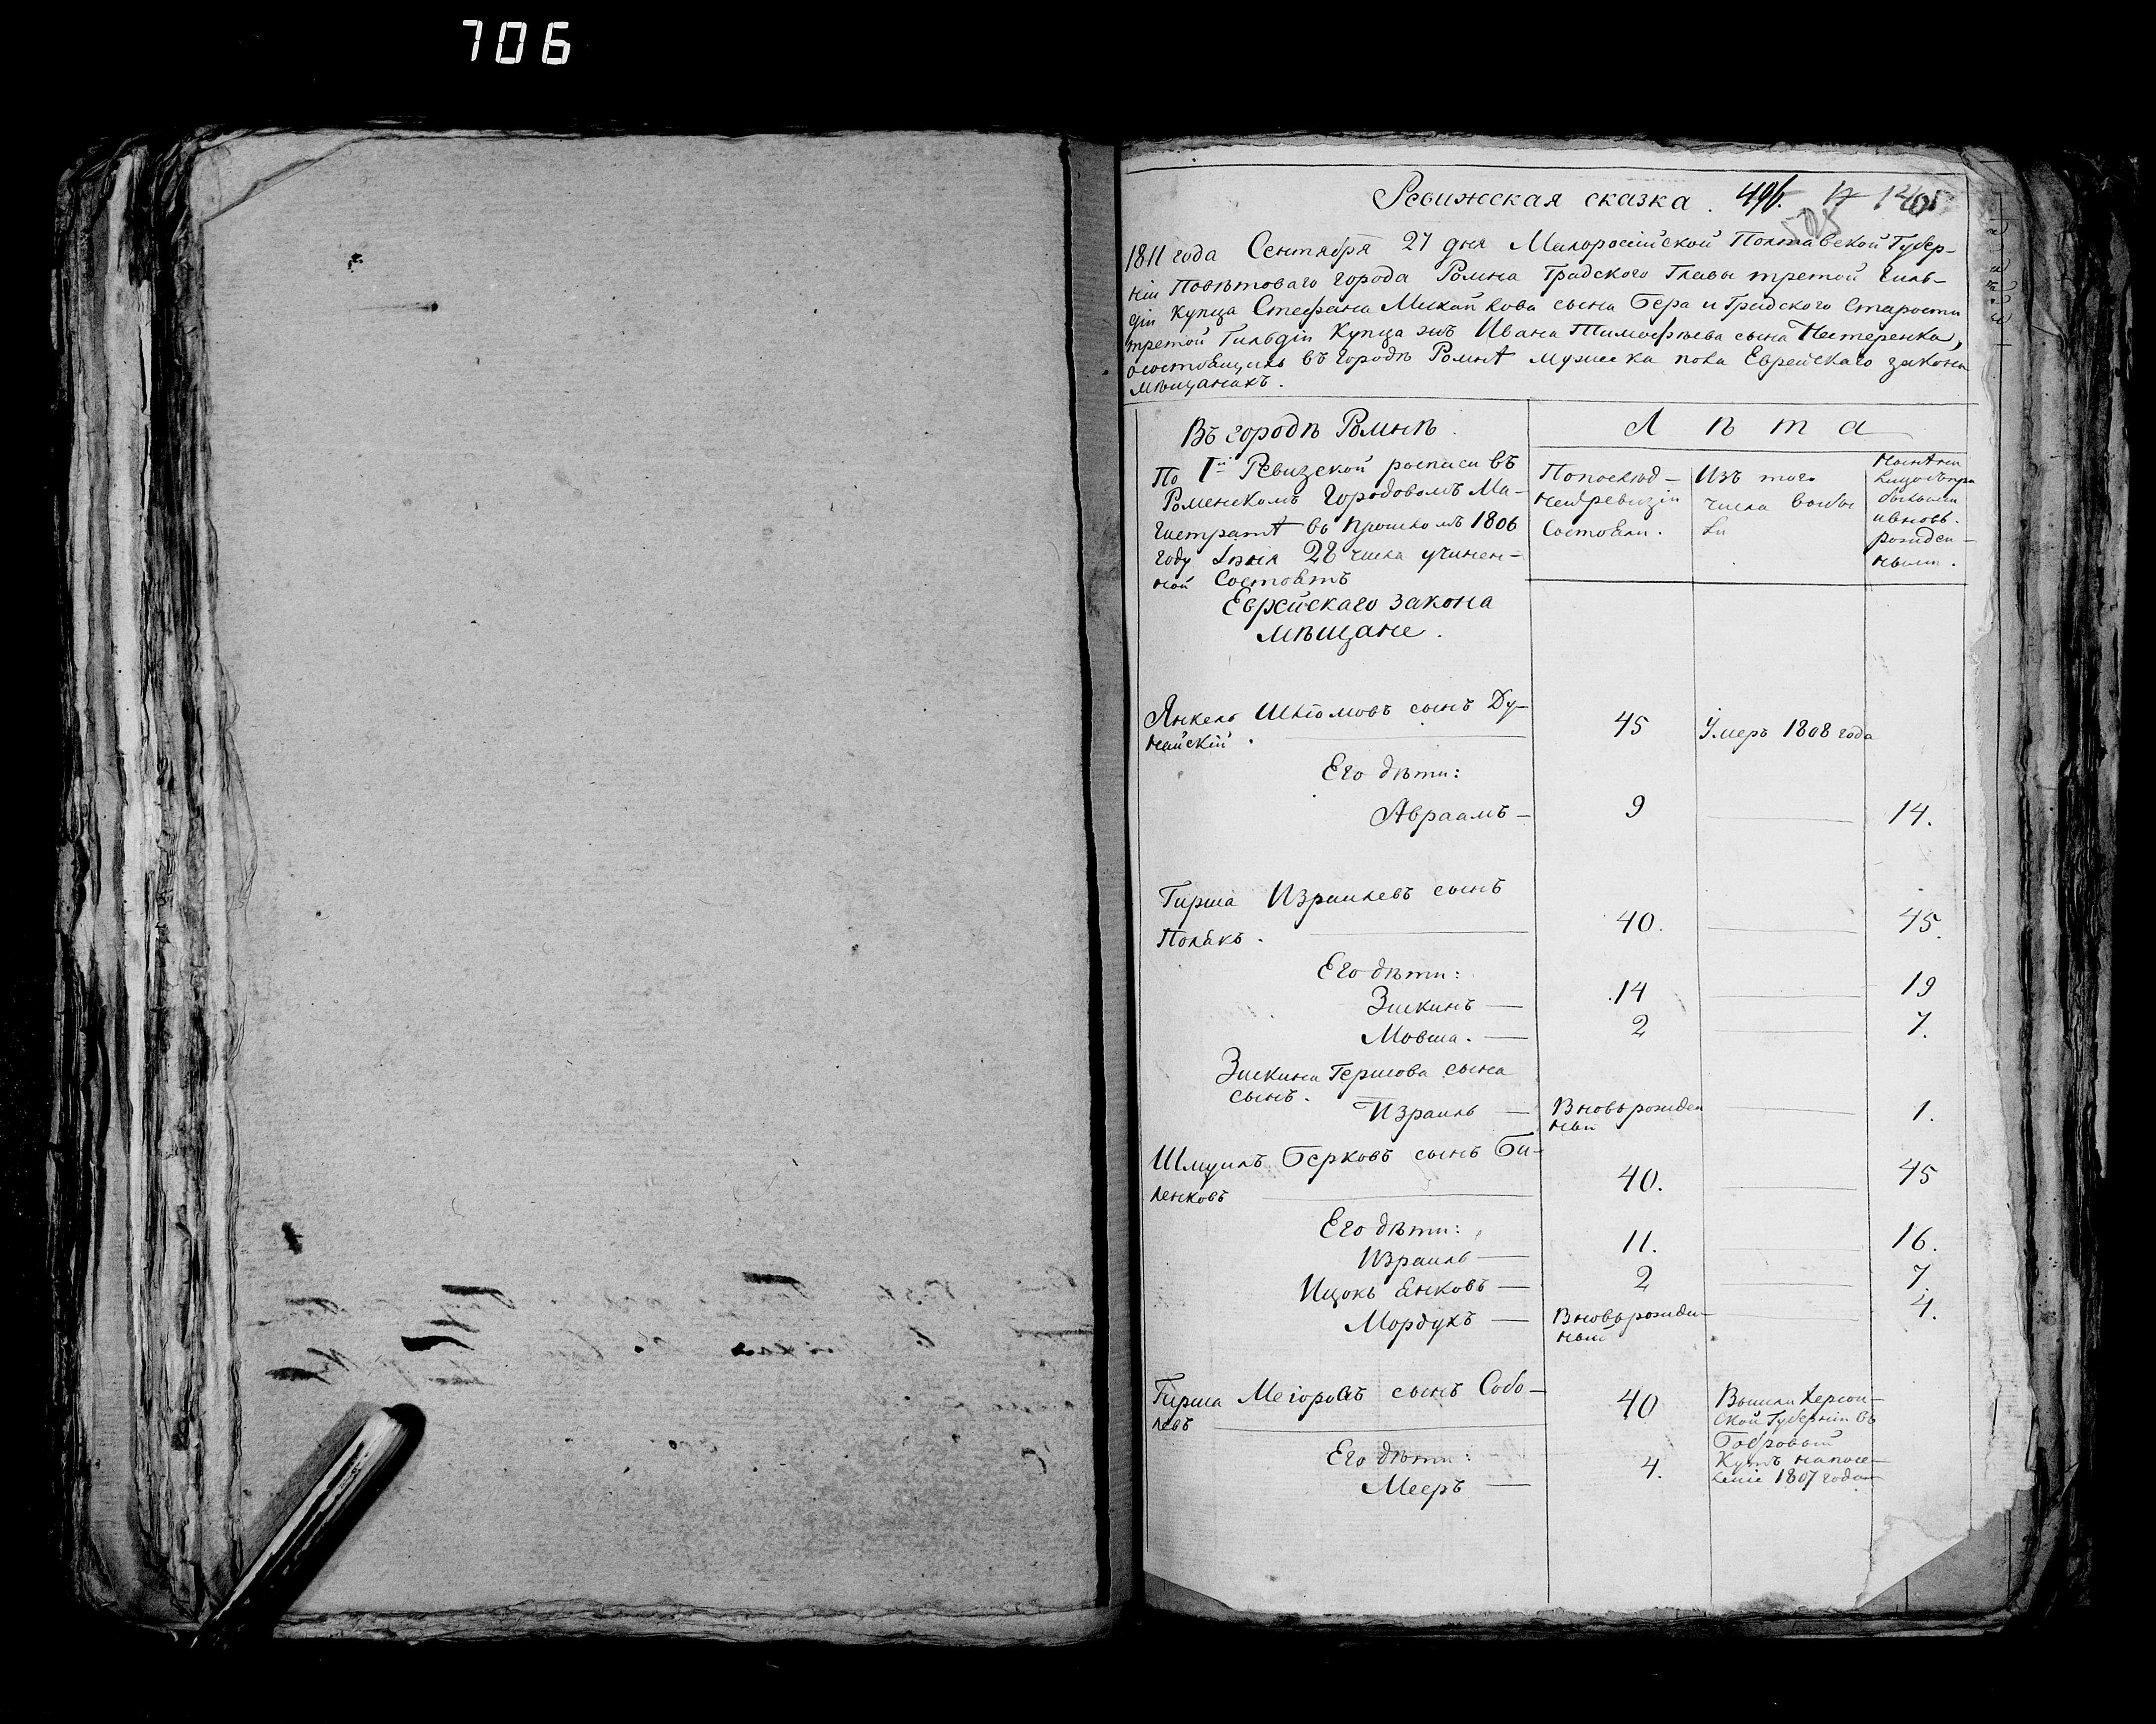 706
Ревижская сказка. 496.
1811 года Сентября 27 дня Малоросiйской Полтавской Губер-
нiи Повѣтоваго города Ромна Градского Главы третой Гиль-
дiи Купца Стефана Михайлова сына Бера и Градского Старости
третой Гильдiи Купца жъ Ивана Тимофѣева сына Нестеренка,
осостоящихъ въ городѣ Ромнѣ мужеска пола Еврейскаго закона
мѣщанахъ.
Въ городѣ Ромнѣ.
Л ѣ т а
По Iй Ревизской росписи въ
Роменскомъ Городовомъ Ма-
гистратѣ въ прошломъ 1806
году Iюня 28 числа учинен-
ной Состоятъ
Еврейскаго закона
мѣщане.
Попослѣд-
ней ревизiи
Состояли.
Изъ того
числа выбы
ли
рожден-
ными.
Янкель Шліомовъ сынъ Ду-
найскiй.
45
Умеръ 1808 года
Его дѣти:
Авраамъ —
9
14.
Гирша Израилевъ сынъ
Полякъ.
40.
45.
Его дѣти:
Зискинъ —
14
19
Мовша. —
2
7.
Зискина Гершова сына
сынъ.
Израиль —
Вновьрожден
ный
1.
Шмуилъ Берковъ сынъ Би-
ленковъ
40.
45
Его дѣти:
Израиль —
11.
16.
Ицокъ Янковъ —
2
7.
Мордухъ —
Вновьрожде-
ный
4.
Гирша Меiоровъ сынъ Собо-
левъ
40
Вышли Херсон-
ской Губернiи въ
Бобровый
Кутъ напосе-
ленiе 1807 года
Его дѣти:
Мееръ —
4.